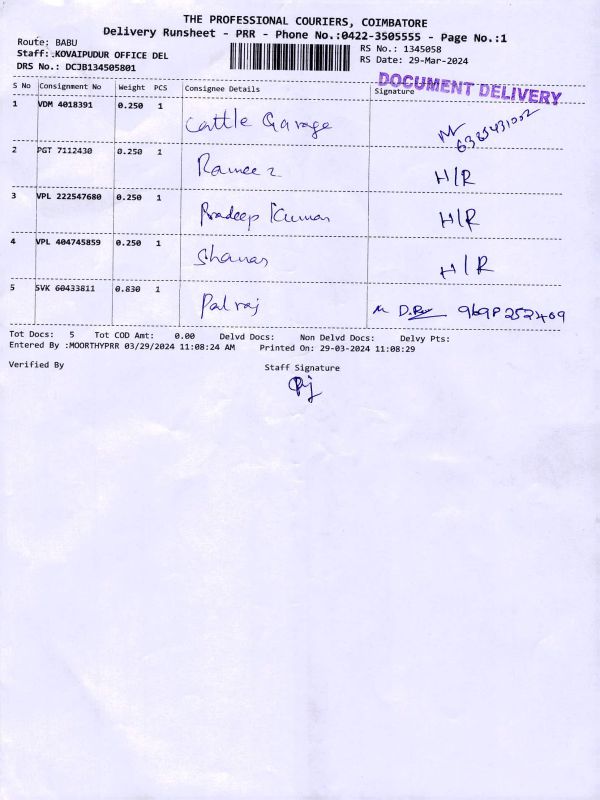 THE PROFESSIONAL COURIERS, COIMBATORE
Delivery Runsheet - PRR - Phone No.:0422-3505555 - Page No.:1
Route: BABU RS No.: 1345058
Staff:.KOVAIPUDUR OFFICE DEL RS Date: 29-Mar-2024
DRS No.: DCJB134505801
DOCUMENT DELIVERY
S No Consignment No Weight PCS Consignee Details Signature
1 VDM 4018391 0.250 1 Cattle Garage
2 PGT 7112430 0.250 1 Rameez H/R
3 VPL 222547680 0.250 1 Pradeep Kumar H/R
4 VPL 404745859 0.250 1 Shanas H/R
5 SVK 60433811 0.830 1 Palraj
Tot Docs: 5 Tot COD Amt: 0.00 Delvd Docs: Non Delvd Docs: Delvy Pts:
Entered By :MOORTHYPRR 03/29/2024 11:08:24 AM Printed On: 29-03-2024 11:08:29
Verified By Staff Signature